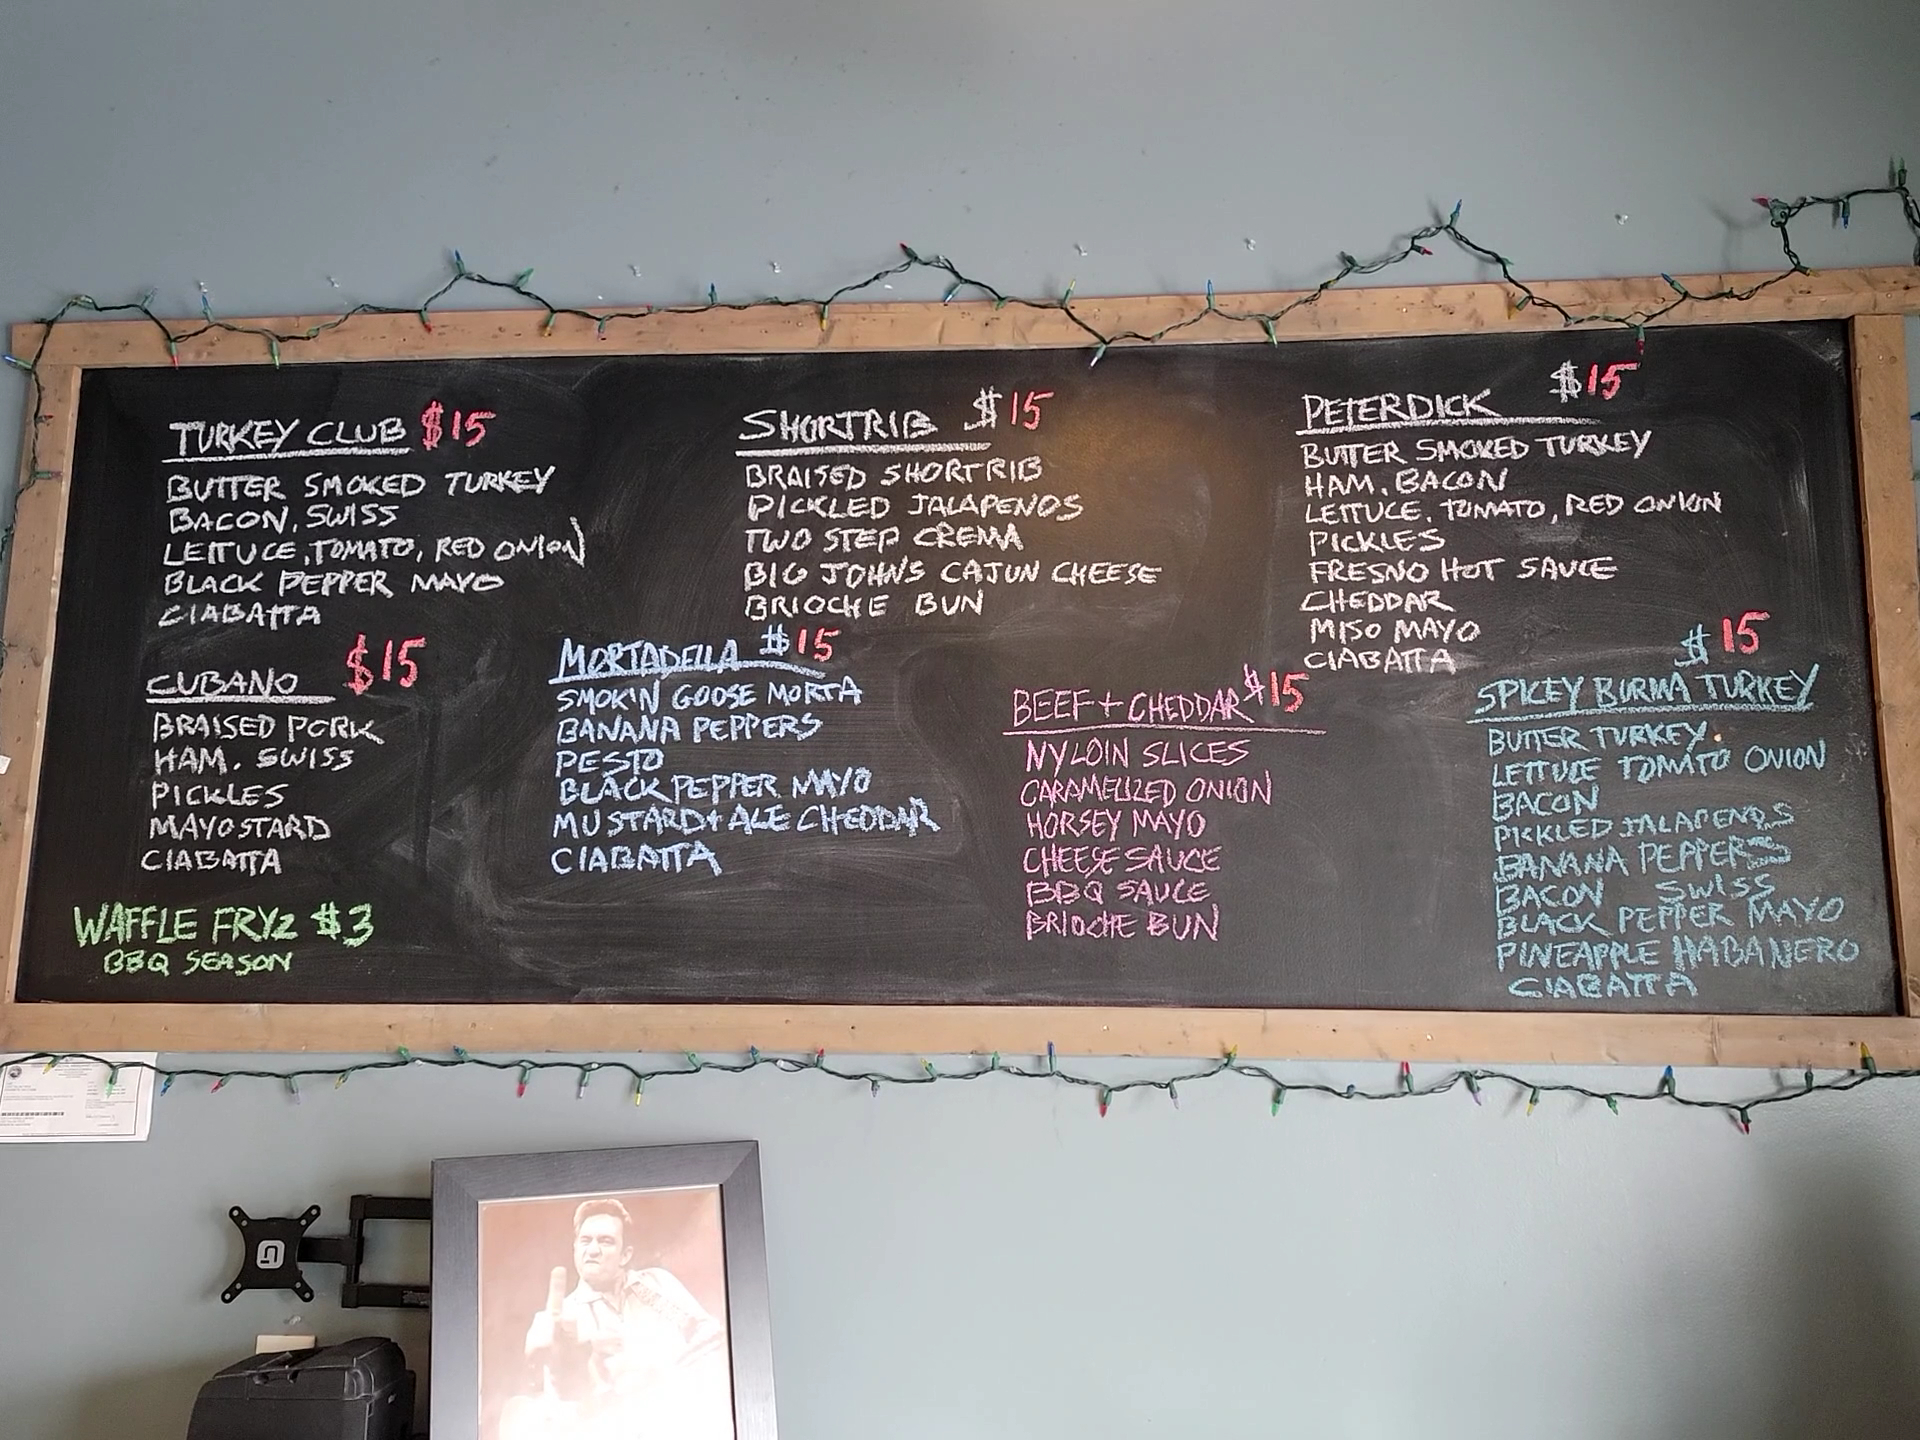 TURKEY CLUB $15
BUTTER SMOKED TURKEY
BACON, SWISS
LETTUCE, TOMATO, RED ONION
BLACK PEPPER MAYO
CIABATTA
SHORTRIB $15
BRAISED SHORTRIB
PICKLED JALAPENOS
TWO STEP CREMA
BIG JOHNS CAJUN CHEESE
BRIOCHE BUN
PETERDICK $15
BUTTER SMOKED TURKEY
HAM, BACON
LETTUCE, TOMATO, RED ONION
PICKLES
FRESNO HOT SAUCE
CHEDDAR
MISO MAYO
CIABATTA
CUBANO $15
BRAISED PORK
HAM, SWISS
PICKLES
MAYOSTARD
CIABATTA
MORTADELLA $15
SMOKIN GOOSE MORTA
BANANA PEPPERS
PESTO
BLACK PEPPER MAYO
MUSTARD + ALE CHEDDAR
CIABATTA
BEEF + CHEDDAR $15
NYLOIN SLICES
CARAMELIZED ONION
HORSEY MAYO
CHEESE SAUCE
BBQ SAUCE
BRIOCHE BUN
$15
SPICEY BIRMA TURKEY
BUTTER TURKEY
LETTUCE TOMATO ONION
BACON
PICKLED JALAPENOS
BANANA PEPPERS
BACON SWISS
BLACK PEPPER MAYO
PINEAPPLE HABANERO
CIABATTA
WAFFLE FRYZ $3
BBQ SEASON